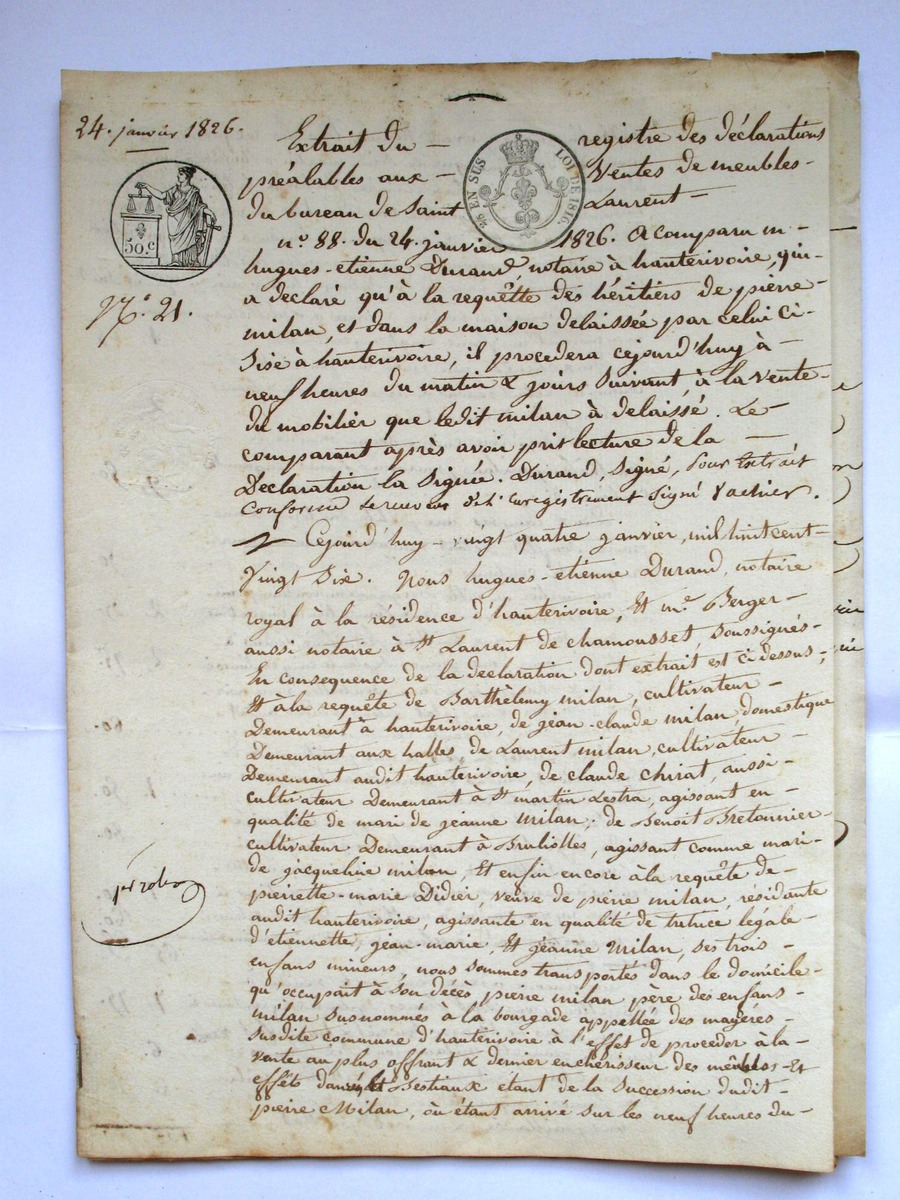 24. janvier 1826.
Extrait du — registre des déclarations
préalables aux — Ventes de meubles -
du bureau de Saint Laurent —
2/s EN SUS LOI DE 1816.
50.c
n.o 88. du 24. janvier 1826. A comparu m -
hugues-etienne Durand, notaire à hauterivoire, qui -
a declaré qu'à la requêtte des héritiers de pierre -
milan, et dans la maison delaissée par celui ci -
Sise à hauterivoire, il procedera cejourd'huy à -
neuf heures du matin & jours Suivant, à la vente -
du mobilier que ledit milan à delaissé. Le -
comparant après avoir pris lecture de la —
Declaration la Signée. Durand, Signé, Pour Extrait
Conforme Le receveur de l'Enregistrement Signé Vacher.
N.o 21.
Cejourd'huy - vingt quatre janvier, mil huit cent -
Vingt Six. Nous hugues-etienne Durand, notaire
royal à la résidence d'hauterivoire, Et m.e Berger -
aussi notaire à St Laurent de chamousset, Soussignés -
En consequence de la déclaration dont extrait est ci dessus,
Et à la requête de Barthèlemy milan, cultivateur -
Demeurant à hauterivoire, de jean-claude milan, domestique
Demeurant aux halles, de Laurent milan, cultivateur -
Demeurant audit hauterivoire, de claude chirat, aussi -
cultivateur Demeurant à St martin Lestra, agissant en -
qualité de mari de jeanne milan, de Benoit Bretonnier -
cultivateur Demeurant à Bruliolles, agissant comme mari -
de jacqueline milan, Et enfin encore à la requête de -
pierrette-marie Didier, veuve de pierre milan, résidante
audit hauterivoire, agissante en qualité de tutrice légale -
d'etiennette, jean-marie, Et jeanne Milan, Ses trois -
enfans mineurs, nous Sommes transportés dans le domicile -
qu'occupait à Son décès pierre milan père des enfans -
milan susnommés à la bourgade appellée des mayères -
susdite commune d'hauterivoire à l'effet de proceder à la -
vente au plus offrant & dernier enchérisseur des meubles Et
effêts Bestiaux étant de la Succession dudit -
pierre Milan, où étant arrivé sur les neuf heures du -